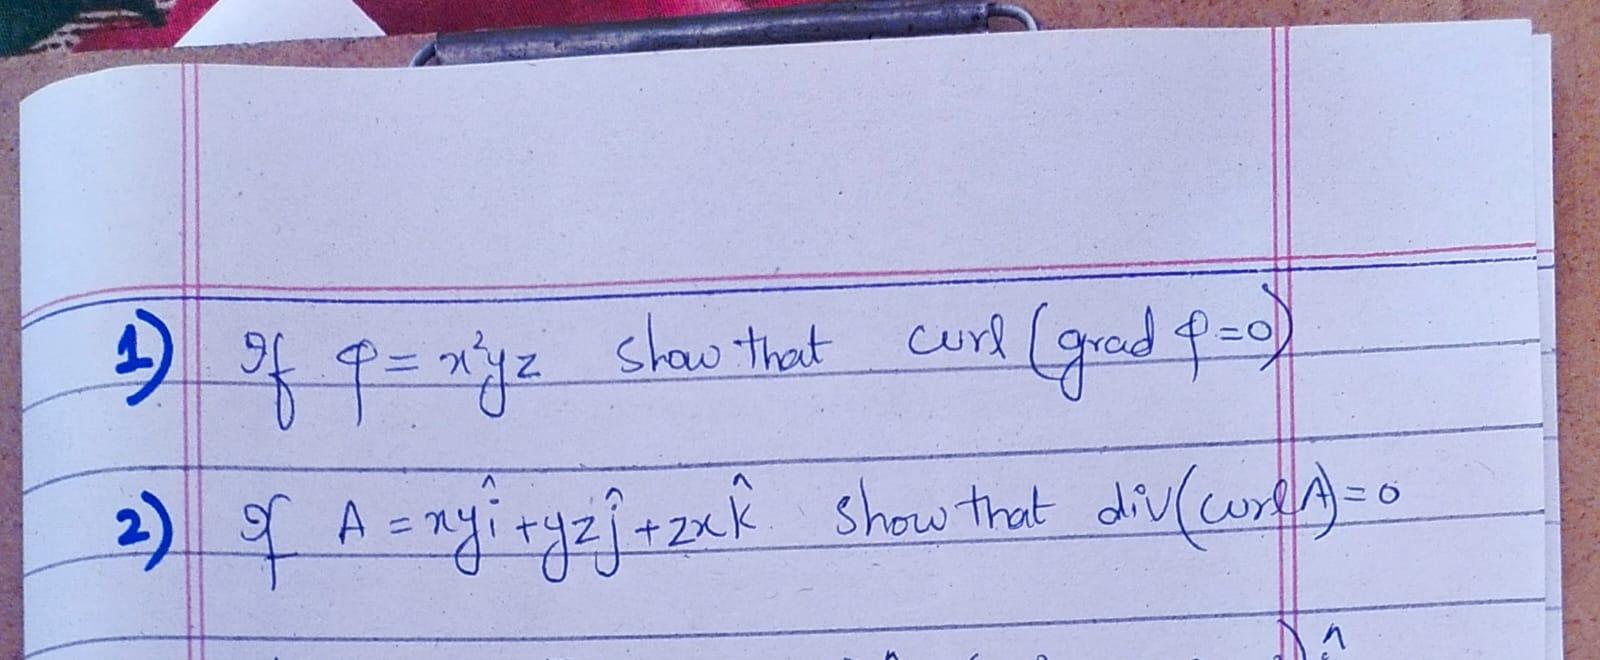 1) If φ = x²yz show that curl (grad φ=0)
2) If A = xyî + yzĵ + zxk̂ show that div(curl A) = 0